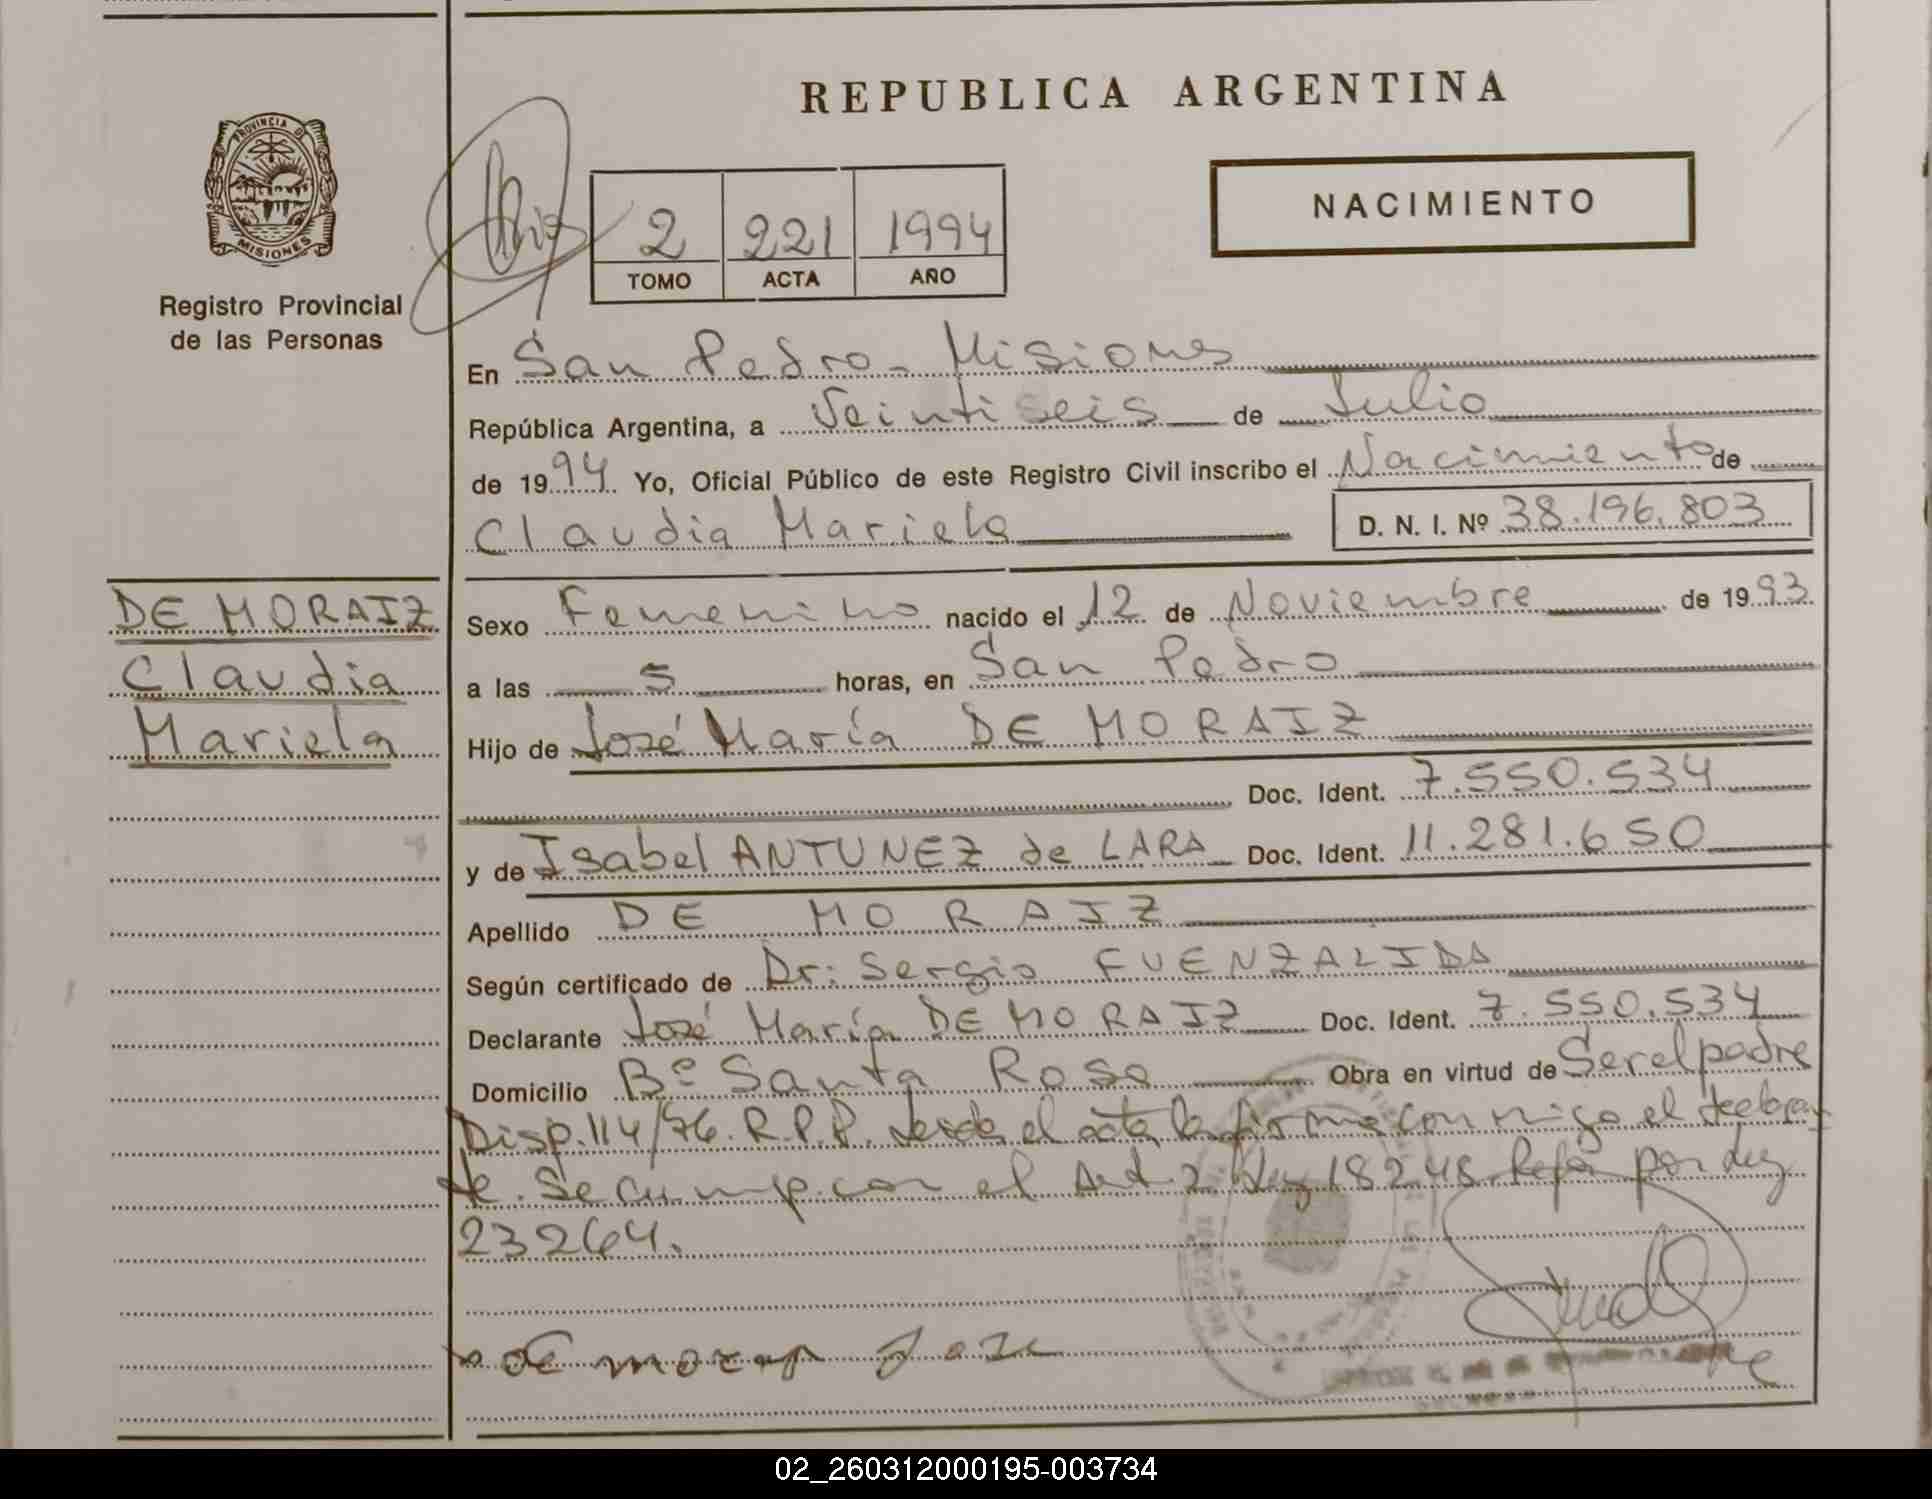 REPUBLICA ARGENTINA
PROVINCIA D
MISIONES
Registro Provincial
de las Personas
2 221 1994
TOMO ACTA AÑO
NACIMIENTO
En San Pedro - Misiones
República Argentina, a Veintiseis de Julio
de 1994 Yo, Oficial Público de este Registro Civil inscribo el Nacimiento de
Claudia Mariela D. N. I. Nº 38.196.803
DE MORAIZ
Claudia
Mariela
Sexo Femenino nacido el 12 de Noviembre de 1993
a las 5 horas, en San Pedro
Hijo de José María DE MORAIZ
Doc. Ident. 7.550.534
y de Isabel ANTUNEZ de LARA Doc. Ident. 11.281.650
Apellido DE MORAIZ
Según certificado de Dr: Sergio FUENZALIDA
Declarante José María DE MORAIZ Doc. Ident. 7.550.534
Domicilio Bº Santa Rosa Obra en virtud de Ser el padre
Disp. 114/76. R.P.P. Leida el acta la firma con migo el declaran
te. Se cump. con el Art. 2 Ley 18248 Refor por Ley
23264.
de José
02_260312000195-003734